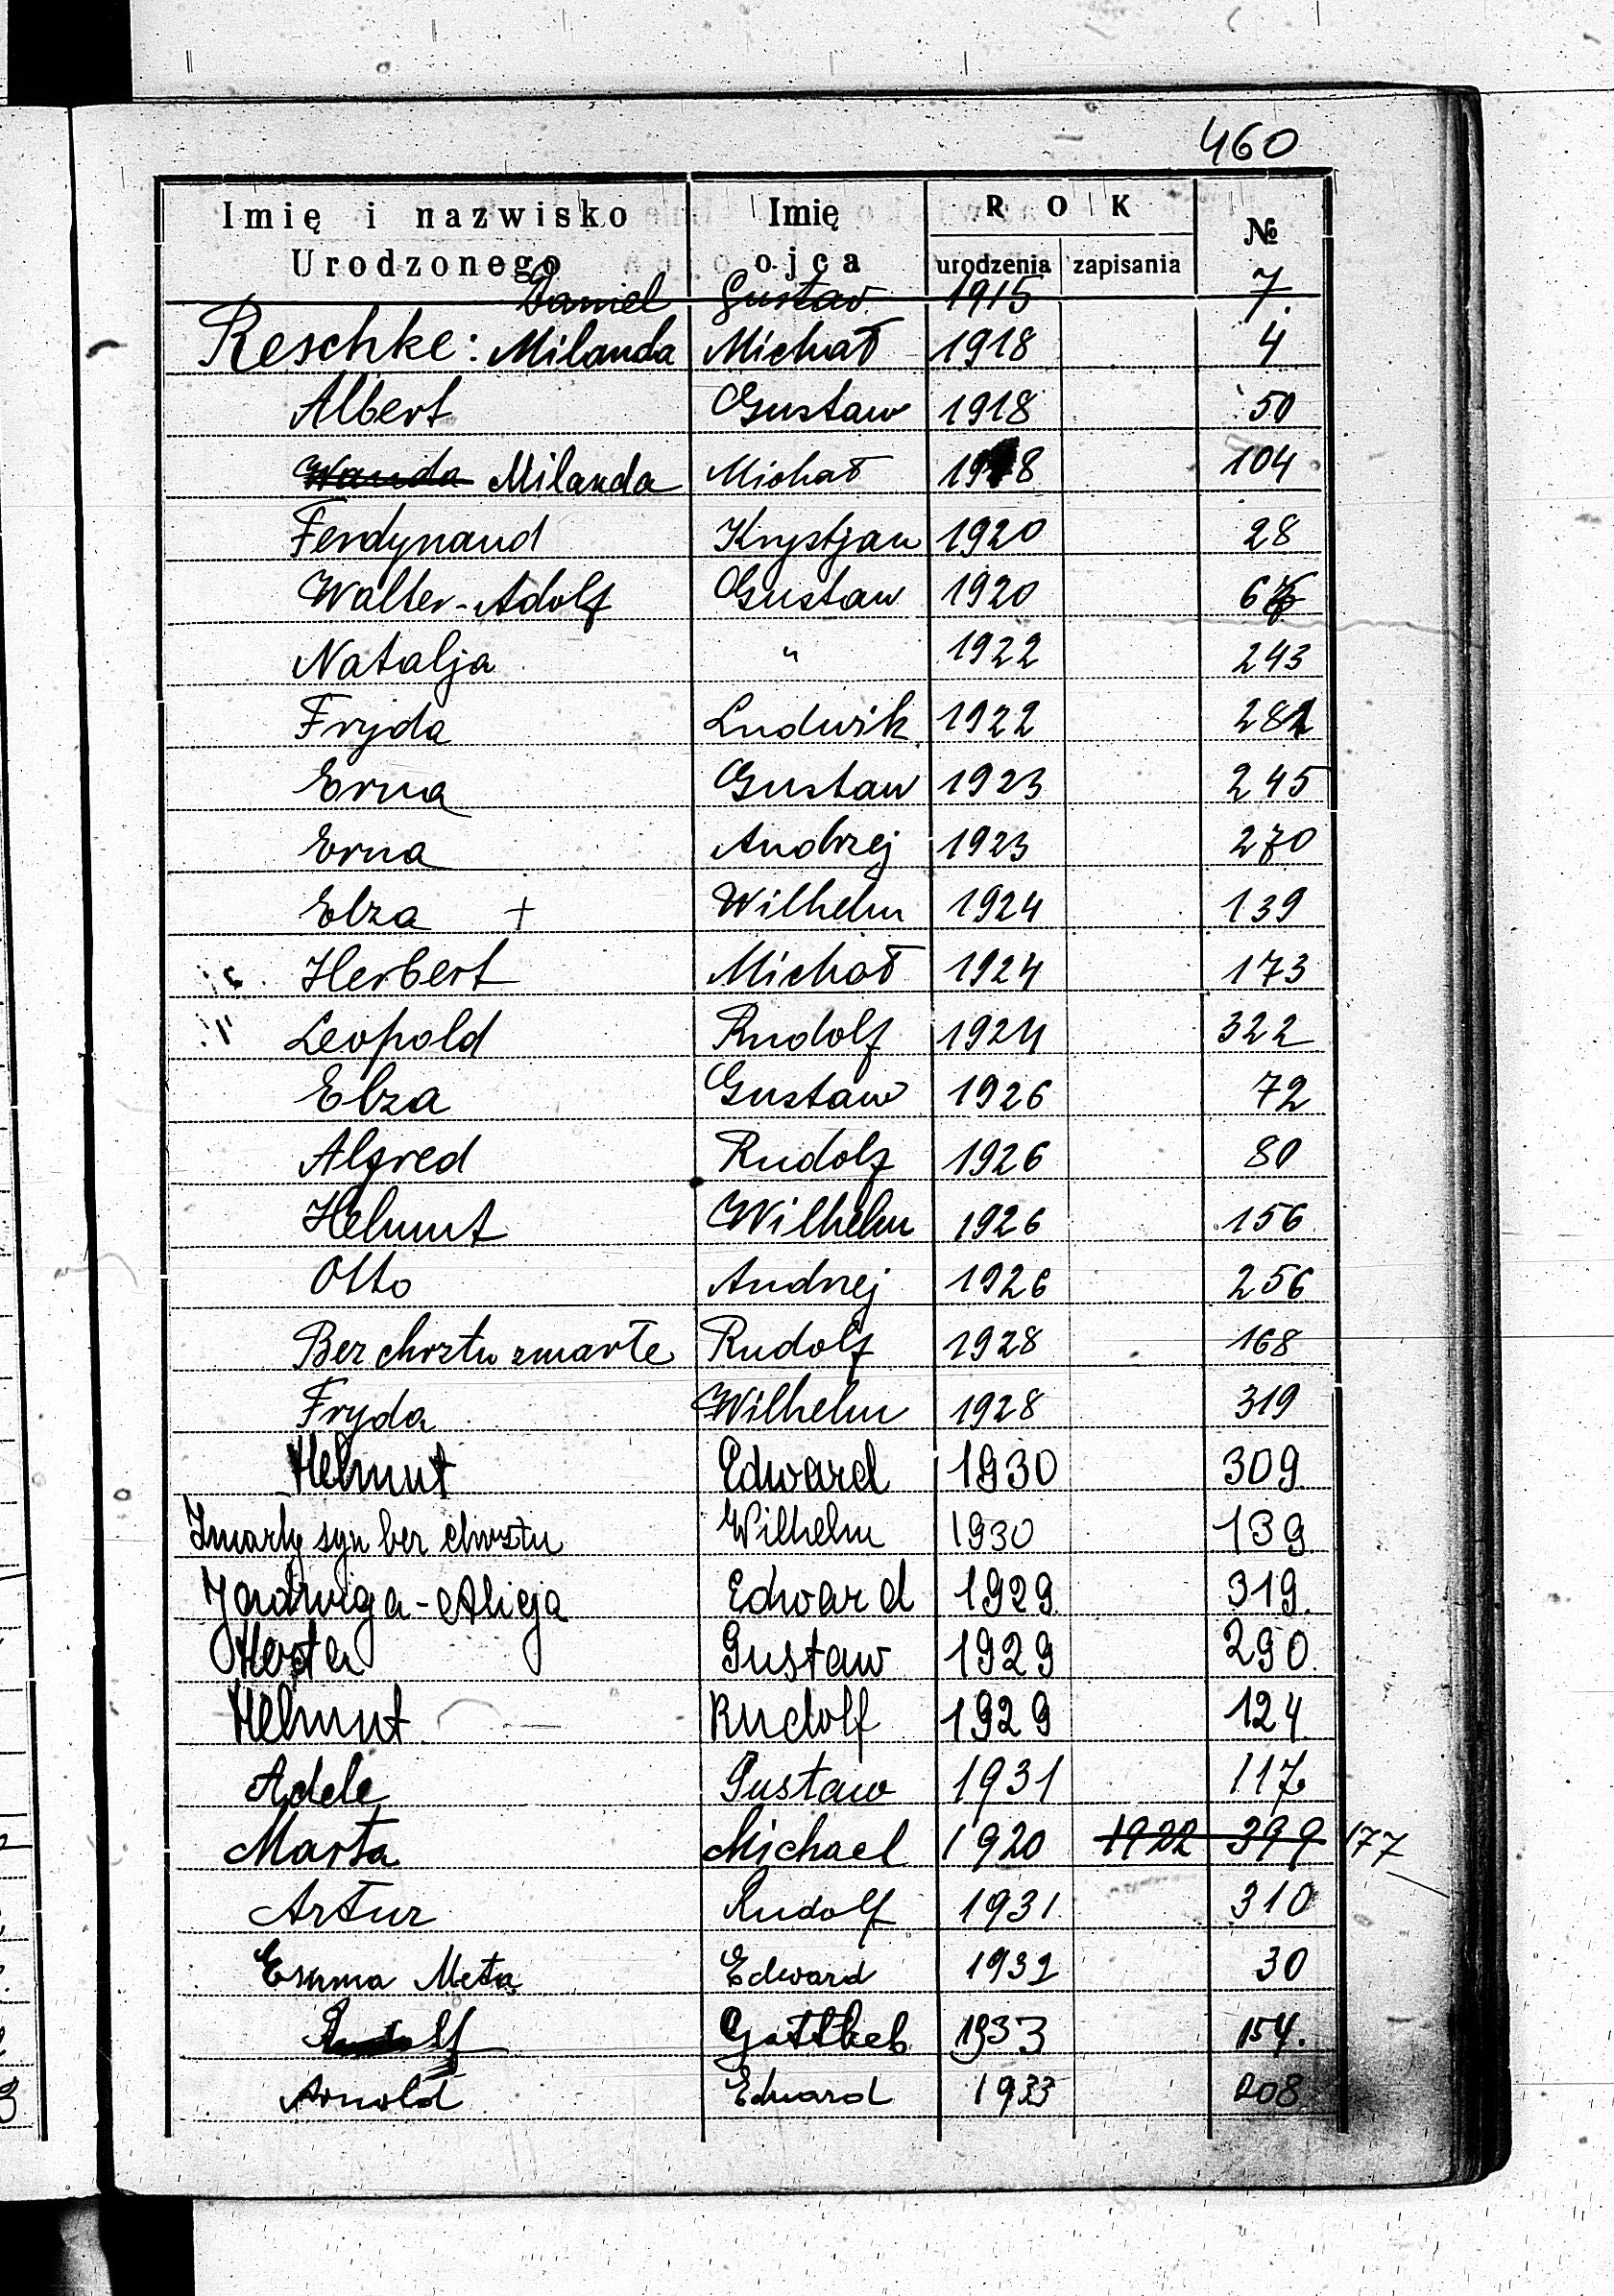 460
Imię i nazwisko Urodzonego Imię ojca ROK urodzenia zapisania №
Daniel Gustav 1915 7.
Reschke: Milanda Michał 1918 4
Albert Gustaw 1918 50
Wanda Milanda Michał 1918 104
Ferdynand Krystjan 1920 28
Walter-Adolf Gustaw 1920
Natalja " 1922 243
Fryda Ludwik 1922
Erna Gustaw 1923 245
Erna Andrzej 1923 270
Elza + Wilhelm 1924 139
Herbert Michał 1924 173
Leopold Rudolf 1924 322
Elza Gustaw 1926 72
Alfred Rudolf 1926 80
Helmut Wilhelm 1926 156
Otto Andrzej 1926 256
Bez chrztu zmarłe Rudolf 1928 168
Fryda Wilhelm 1928 319
Helmut Edward 1930 309
Zmarły syn bez chrztu Wilhelm 1930 139
Jadwiga-Alicja Edward 1929 319.
Herta Gustaw 1929 290
Helmut Rudolf 1929 124
Adele Gustaw 1931 117
Marta Michael 1920 1922 399 177
Artur Rudolf 1931 310
Emma Meta Edward 1932 30
Rudolf Gottlieb 1933 154.
Arnold Eduard 1933 208